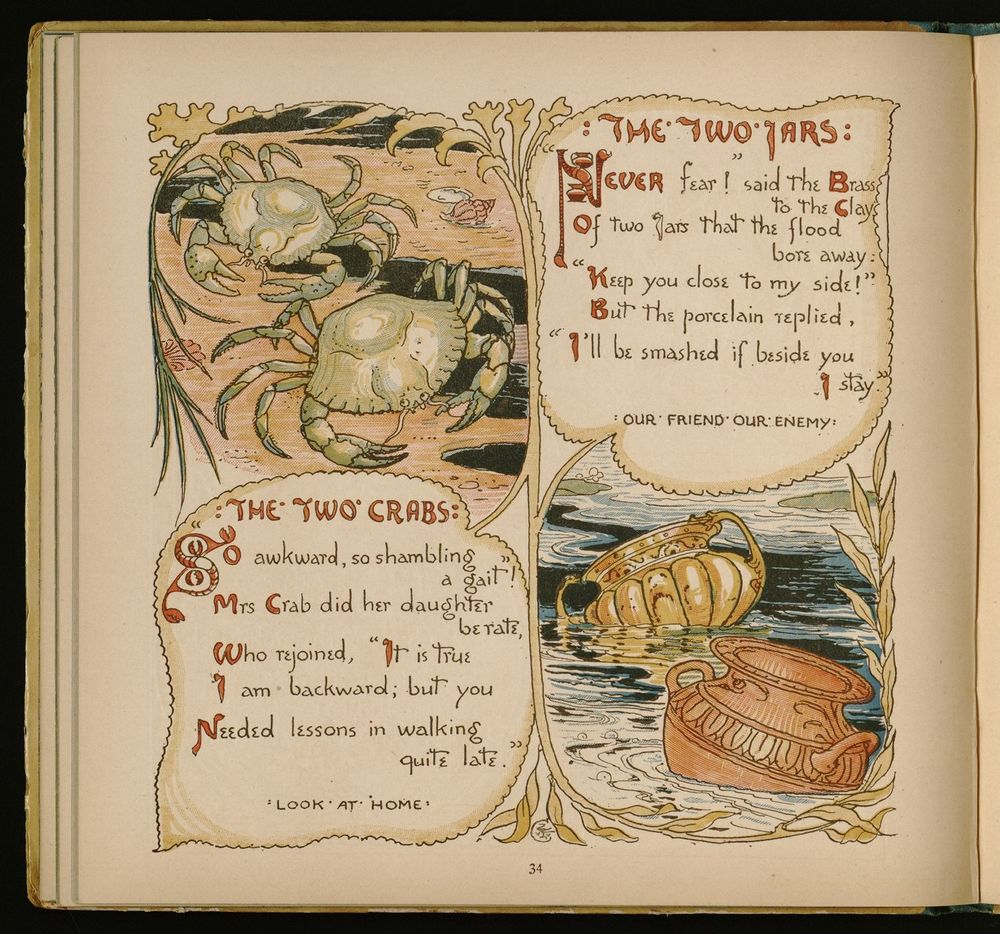 :THE·TWO·JARS:
NEVER fear!" said the Brass
to the Clay
Of two Jars that the flood
bore away:
"Keep you close to my side!"
But the porcelain replied,
"I'll be smashed if beside you
I stay"
:OUR·FRIEND·OUR·ENEMY:
:THE·TWO·CRABS:
So awkward, so shambling
a gait"!
Mrs Crab did her daughter
berate,
Who rejoined, "It is true
I am backward; but you
Needed lessons in walking
quite late."
:LOOK·AT·HOME:
34